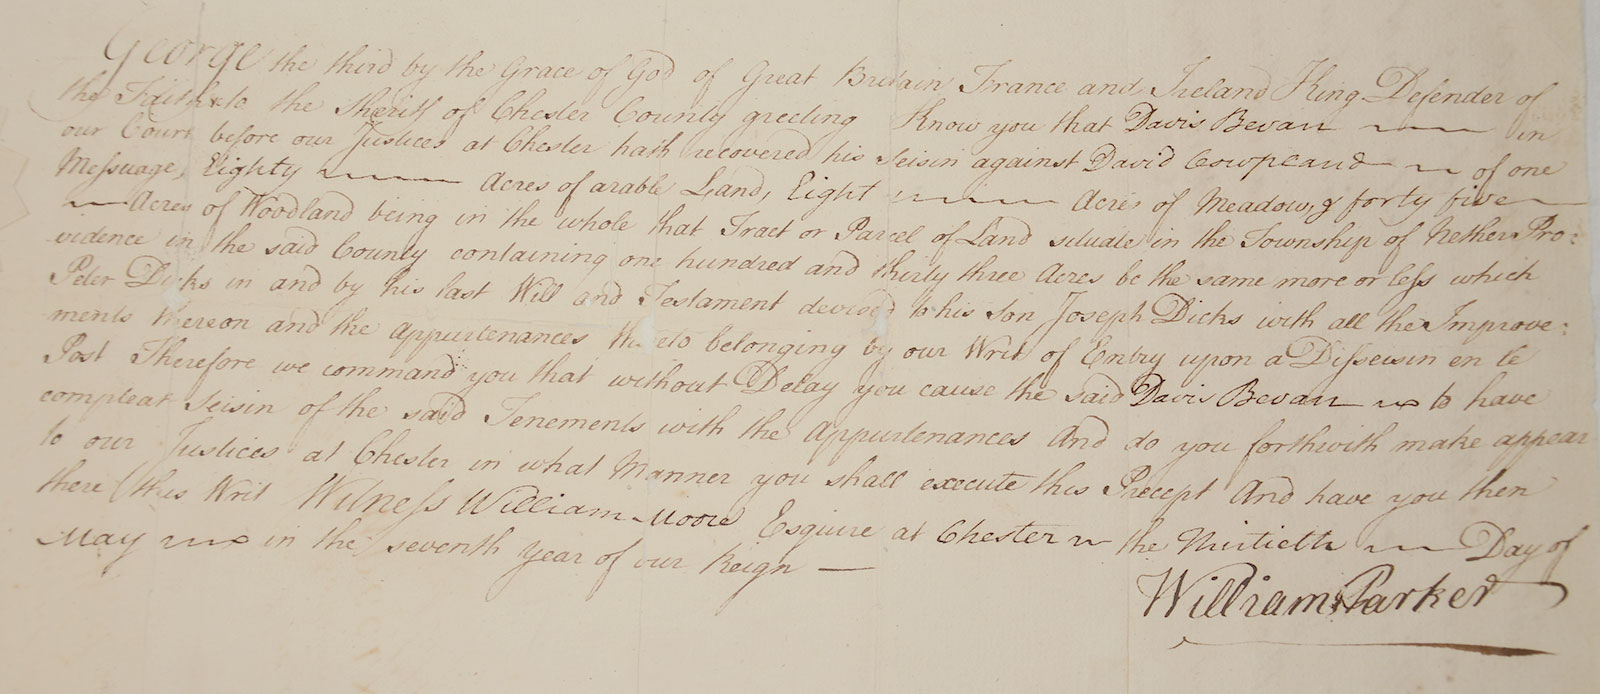 George the third by the Grace of God of Great Britain France and Ireland King Defender of
the Faith &c to the Sheriff of Chester County greeting Know you that Davis Bevan in
our Court before our Justices at Chester hath recovered his Seisin against David Cowpland of one
Messuage, Eighty Acres of arable Land, Eight Acres of Meadow, & forty five
Acres of Woodland being in the whole that Tract or Parcel of Land situate in the Township of Nether Pro:
vidence in the said County containing one hundred and thirty three Acres be the same more or less which
Peter Dicks in and by his last Will and Testament devised to his son Joseph Dicks with all the Improve:
ments thereon and the Appurtenances thereto belonging by our Writ of Entry upon a Disseisin en le
Post Therefore we command you that without Delay you cause the said Davis Bevan to have
compleat Seisin of the said Tenements with the Appurtenances And do you forthwith make appear
to our Justices at Chester in what Manner you shall execute this Precept And have you then
there this Writ Witness William Moore Esquire at Chester the thirtieth Day of
May in the seventh Year of our Reign —
William Parker